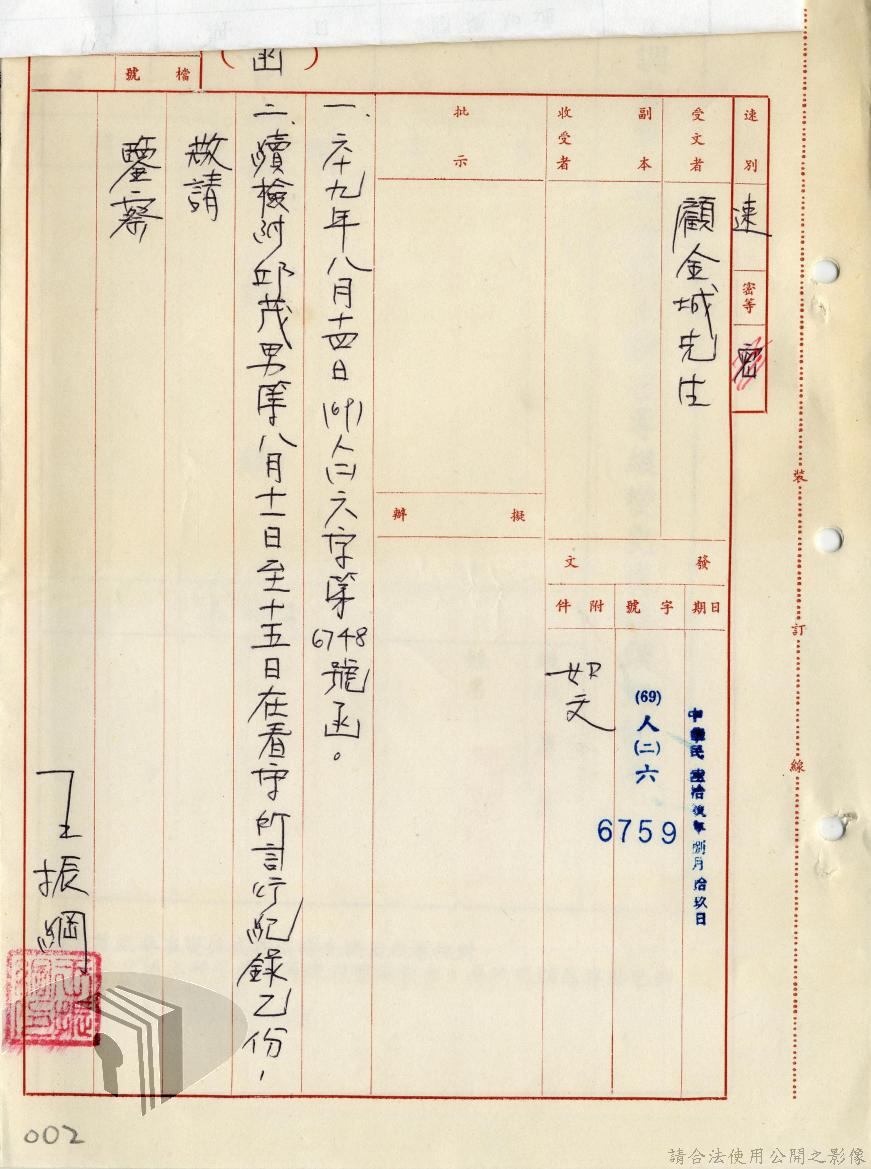 (函)
檔號
速別
速
密等
密
受文者
顧金城先生
副本收受者
批示
擬辦
發文
日期
中華民國陸拾玖年捌月拾玖日
字號
(69)人(二)六
6759
附件
如文
一、六十九年八月十四日(69)人(二)六字第6748號函。
二、續檢附邱茂男等八月十一日至十五日在看守所言行紀錄乙份,
敬請
鑒察
王振綱
裝訂線
002
請合法使用公開之影像